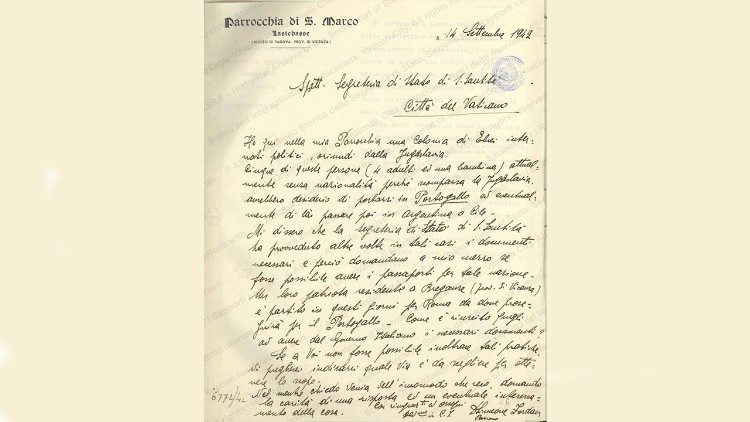 Parrocchia di S. Marco
Lastebasse
(DIOCESI DI PADOVA - PROV. DI VICENZA)
14 Settembre 1942
Spett. Segreteria di Stato di S. Santità
Città del Vaticano
Ho qui nella mia Parrocchia una Colonia di Ebrei inter-
nati politici, oriundi dalla Jugoslavia.
Cinque di queste persone (4 adulti ed una bambina) attual-
mente senza nazionalità perché scomparsa la Jugoslavia
avrebbero desiderio di portarsi in Portogallo ed eventual-
mente di là passare poi in Argentina o Cile.
Mi dissero che la Segreteria di Stato di S. Santità
ha provveduto altre volte in tali casi i documenti
necessari e perciò domandano a mio mezzo se
fosse possibile avere i passaporti per tale nazione.
Un loro patriota residente a Breganze (prov. di Vicenza)
è partito in questi giorni per Roma da dove prose-
guirà per il Portogallo - Come è riuscito quegli
ad avere dal Governo Italiano i necessari documenti?
Se a Voi non fosse possibile inoltrare tali pratiche,
di pregherei indicarmi quale via è da scegliere per otte-
nere lo scopo.
Nel mentre chiedo venia dell'incomodo che reco, domando
la carità di una risposta ed un eventuale interessa-
mento della cosa.
Con ringraziamenti ed ossequi
in C. J.
6772/42